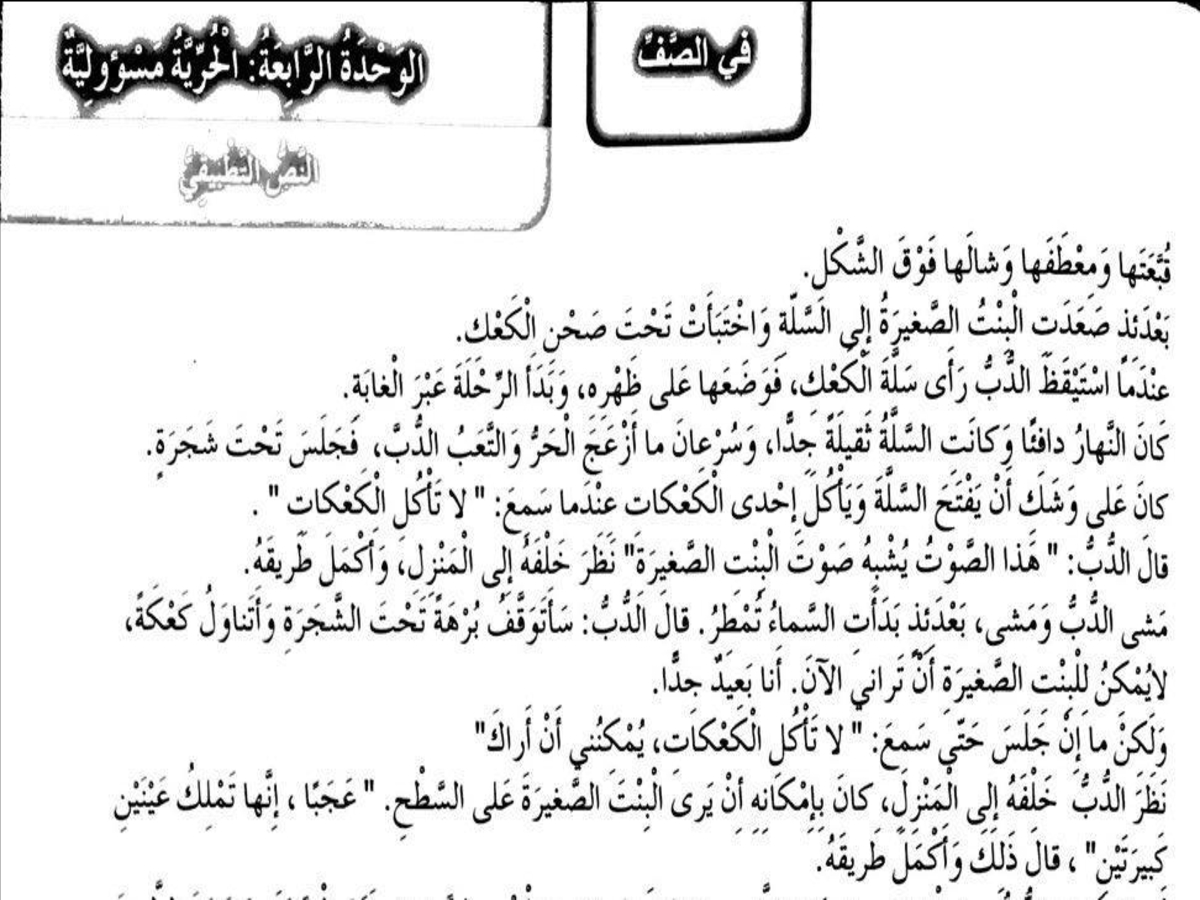 في الصَّفِّ
الوَحْدَةُ الرَّابِعَةُ: الْحُرِّيَّةُ مَسْؤولِيَّةٌ
النَّصُّ التَّطْبيقِيُّ
قُبَّعَتَها وَمِعْطَفَها وَشالَها فَوْقَ الشَّكْلِ.
بَعْدَئِذٍ صَعَدَتِ الْبِنْتُ الصَّغيرَةُ إِلى السَّلَّةِ وَاخْتَبَأَتْ تَحْتَ صَحْنِ الْكَعْكِ.
عِنْدَمَا اسْتَيْقَظَ الدُّبُّ رَأَى سَلَّةَ الْكَعْكِ، فَوَضَعَها عَلى ظَهْرِهِ، وَبَدَأَ الرِّحْلَةَ عَبْرَ الْغابَةِ.
كَانَ النَّهارُ دافِئًا وَكانَتِ السَّلَّةُ ثَقيلَةً جِدًّا، وَسُرْعانَ ما أَزْعَجَ الْحَرُّ وَالتَّعَبُ الدُّبَّ، فَجَلَسَ تَحْتَ شَجَرَةٍ.
كانَ عَلى وَشَكِ أَنْ يَفْتَحَ السَّلَّةَ وَيَأْكُلَ إِحْدى الْكَعْكاتِ عِنْدَما سَمِعَ: " لا تَأْكُلِ الْكَعْكاتِ " .
قالَ الدُّبُّ: " هَذا الصَّوْتُ يُشْبِهُ صَوْتَ الْبِنْتِ الصَّغيرَةِ" نَظَرَ خَلْفَهُ إِلى الْمَنْزِلِ، وَأَكْمَلَ طَريقَهُ.
مَشى الدُّبُّ وَمَشى، بَعْدَئِذٍ بَدَأَتِ السَّماءُ تُمْطِرُ. قالَ الدُّبُّ: سَأَتَوَقَّفُ بُرْهَةً تَحْتَ الشَّجَرَةِ وَأَتَناوَلُ كَعْكَةً،
لايُمْكِنُ لِلْبِنْتِ الصَّغيرَةِ أَنْ تَراني الآنَ. أَنا بَعيدٌ جِدًّا.
وَلَكِنْ ما إِنْ جَلَسَ حَتّى سَمِعَ: " لا تَأْكُلِ الْكَعْكَاتِ، يُمْكِنُني أَنْ أَراكَ"
نَظَرَ الدُّبُّ خَلْفَهُ إِلى الْمَنْزِلِ، كانَ بِإِمْكَانِهِ أَنْ يَرى الْبِنْتَ الصَّغيرَةَ عَلى السَّطْحِ. " عَجَبًا ، إِنَّها تَمْلِكُ عَيْنَيْنِ
كَبيرَتَيْنِ" ، قالَ ذَلِكَ وَأَكْمَلَ طَريقَهُ.